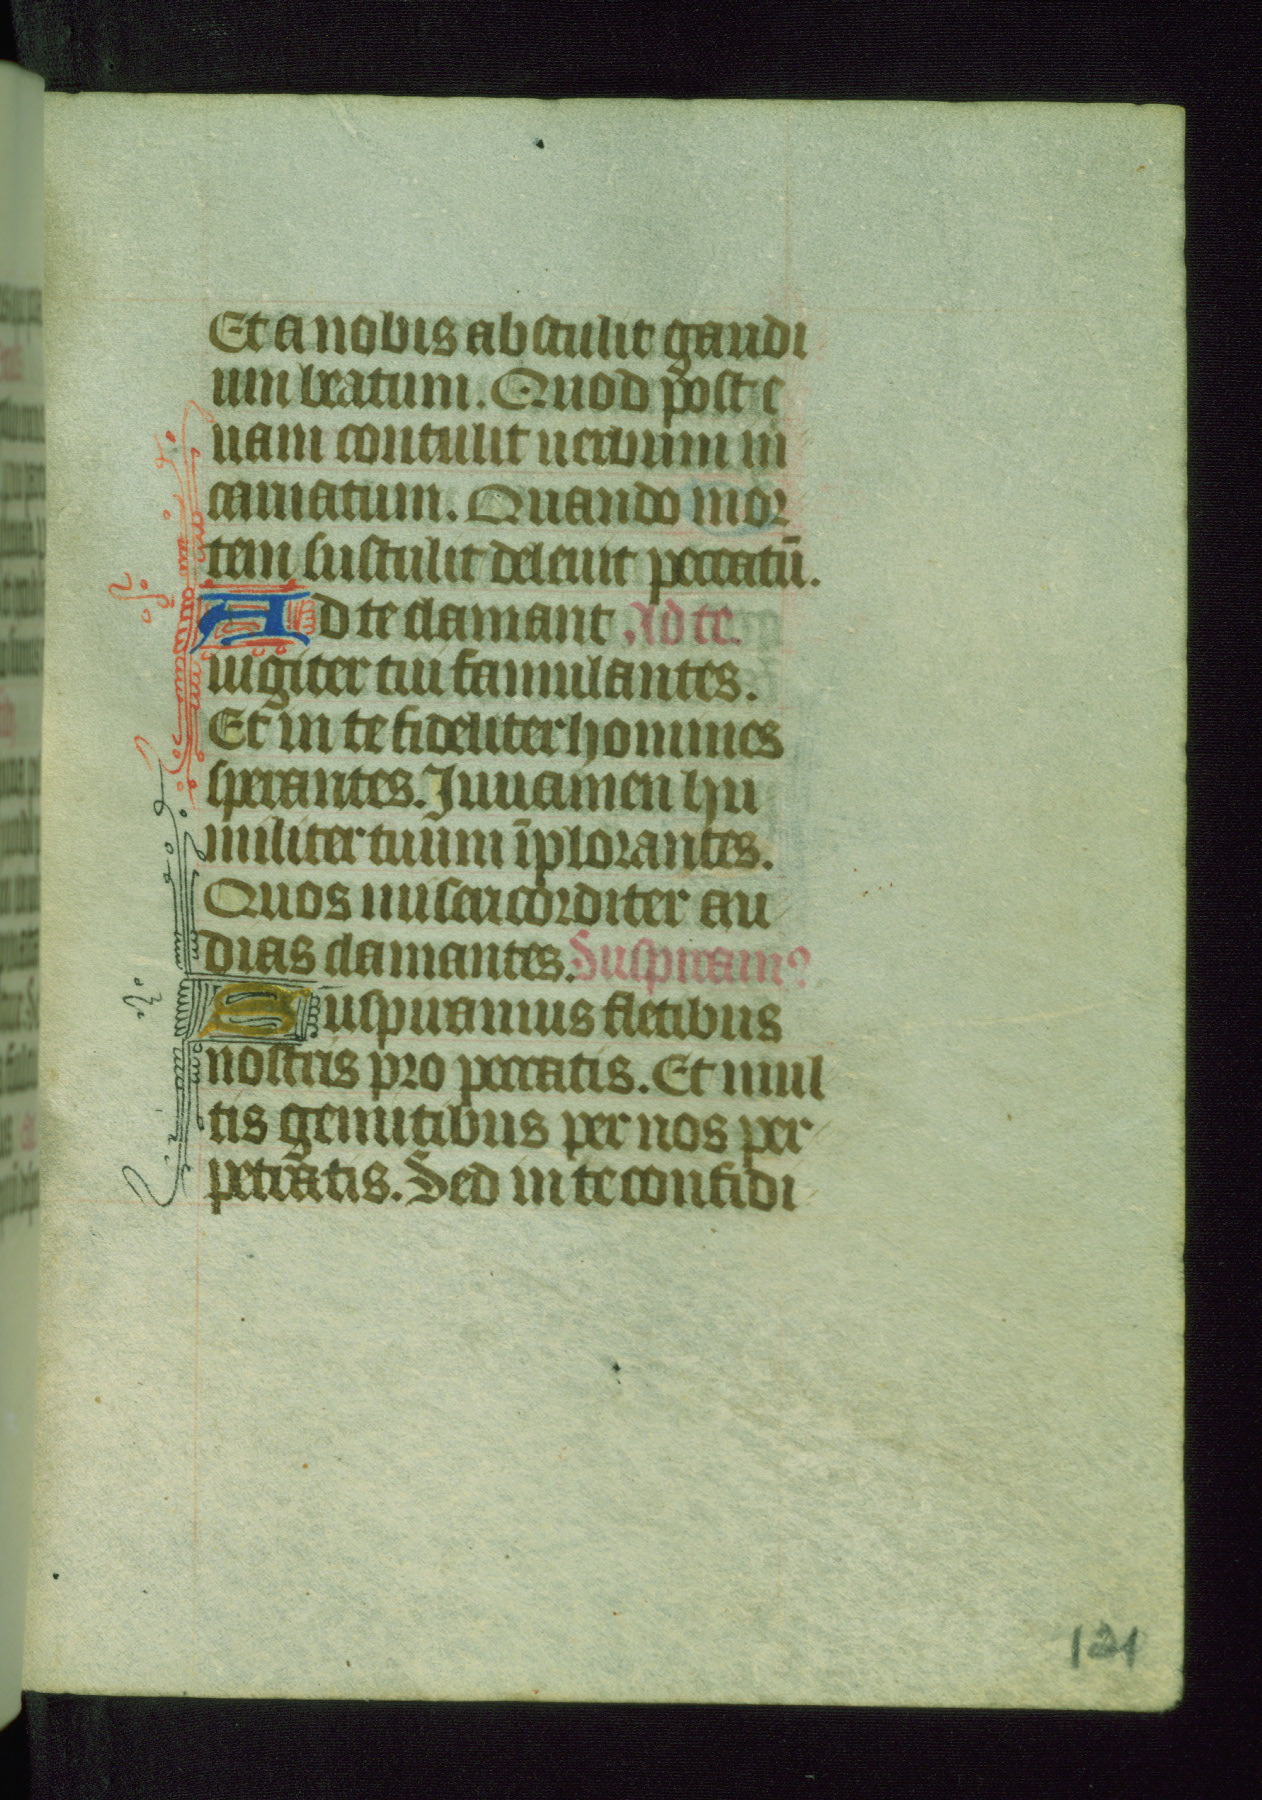 Et a nobis abstulit gaudi
um beatum. Quod post e
uam contulit uerbum in
carnatum. Quando mor
tem sustulit deleuit peccatū.
Ad te clamant Ad te.
iugiter tui famulantes.
Et in te fideliter homines
sperantes. Juuamen hu
militer tuūm īplorantes.
Quos misericorditer au
dias clamantes. Suspiram9
Suspiramus fletibus
nostris pro peccatis. Et mul
tis gemitibus per nos per
petratis. Sed in te confidi
121